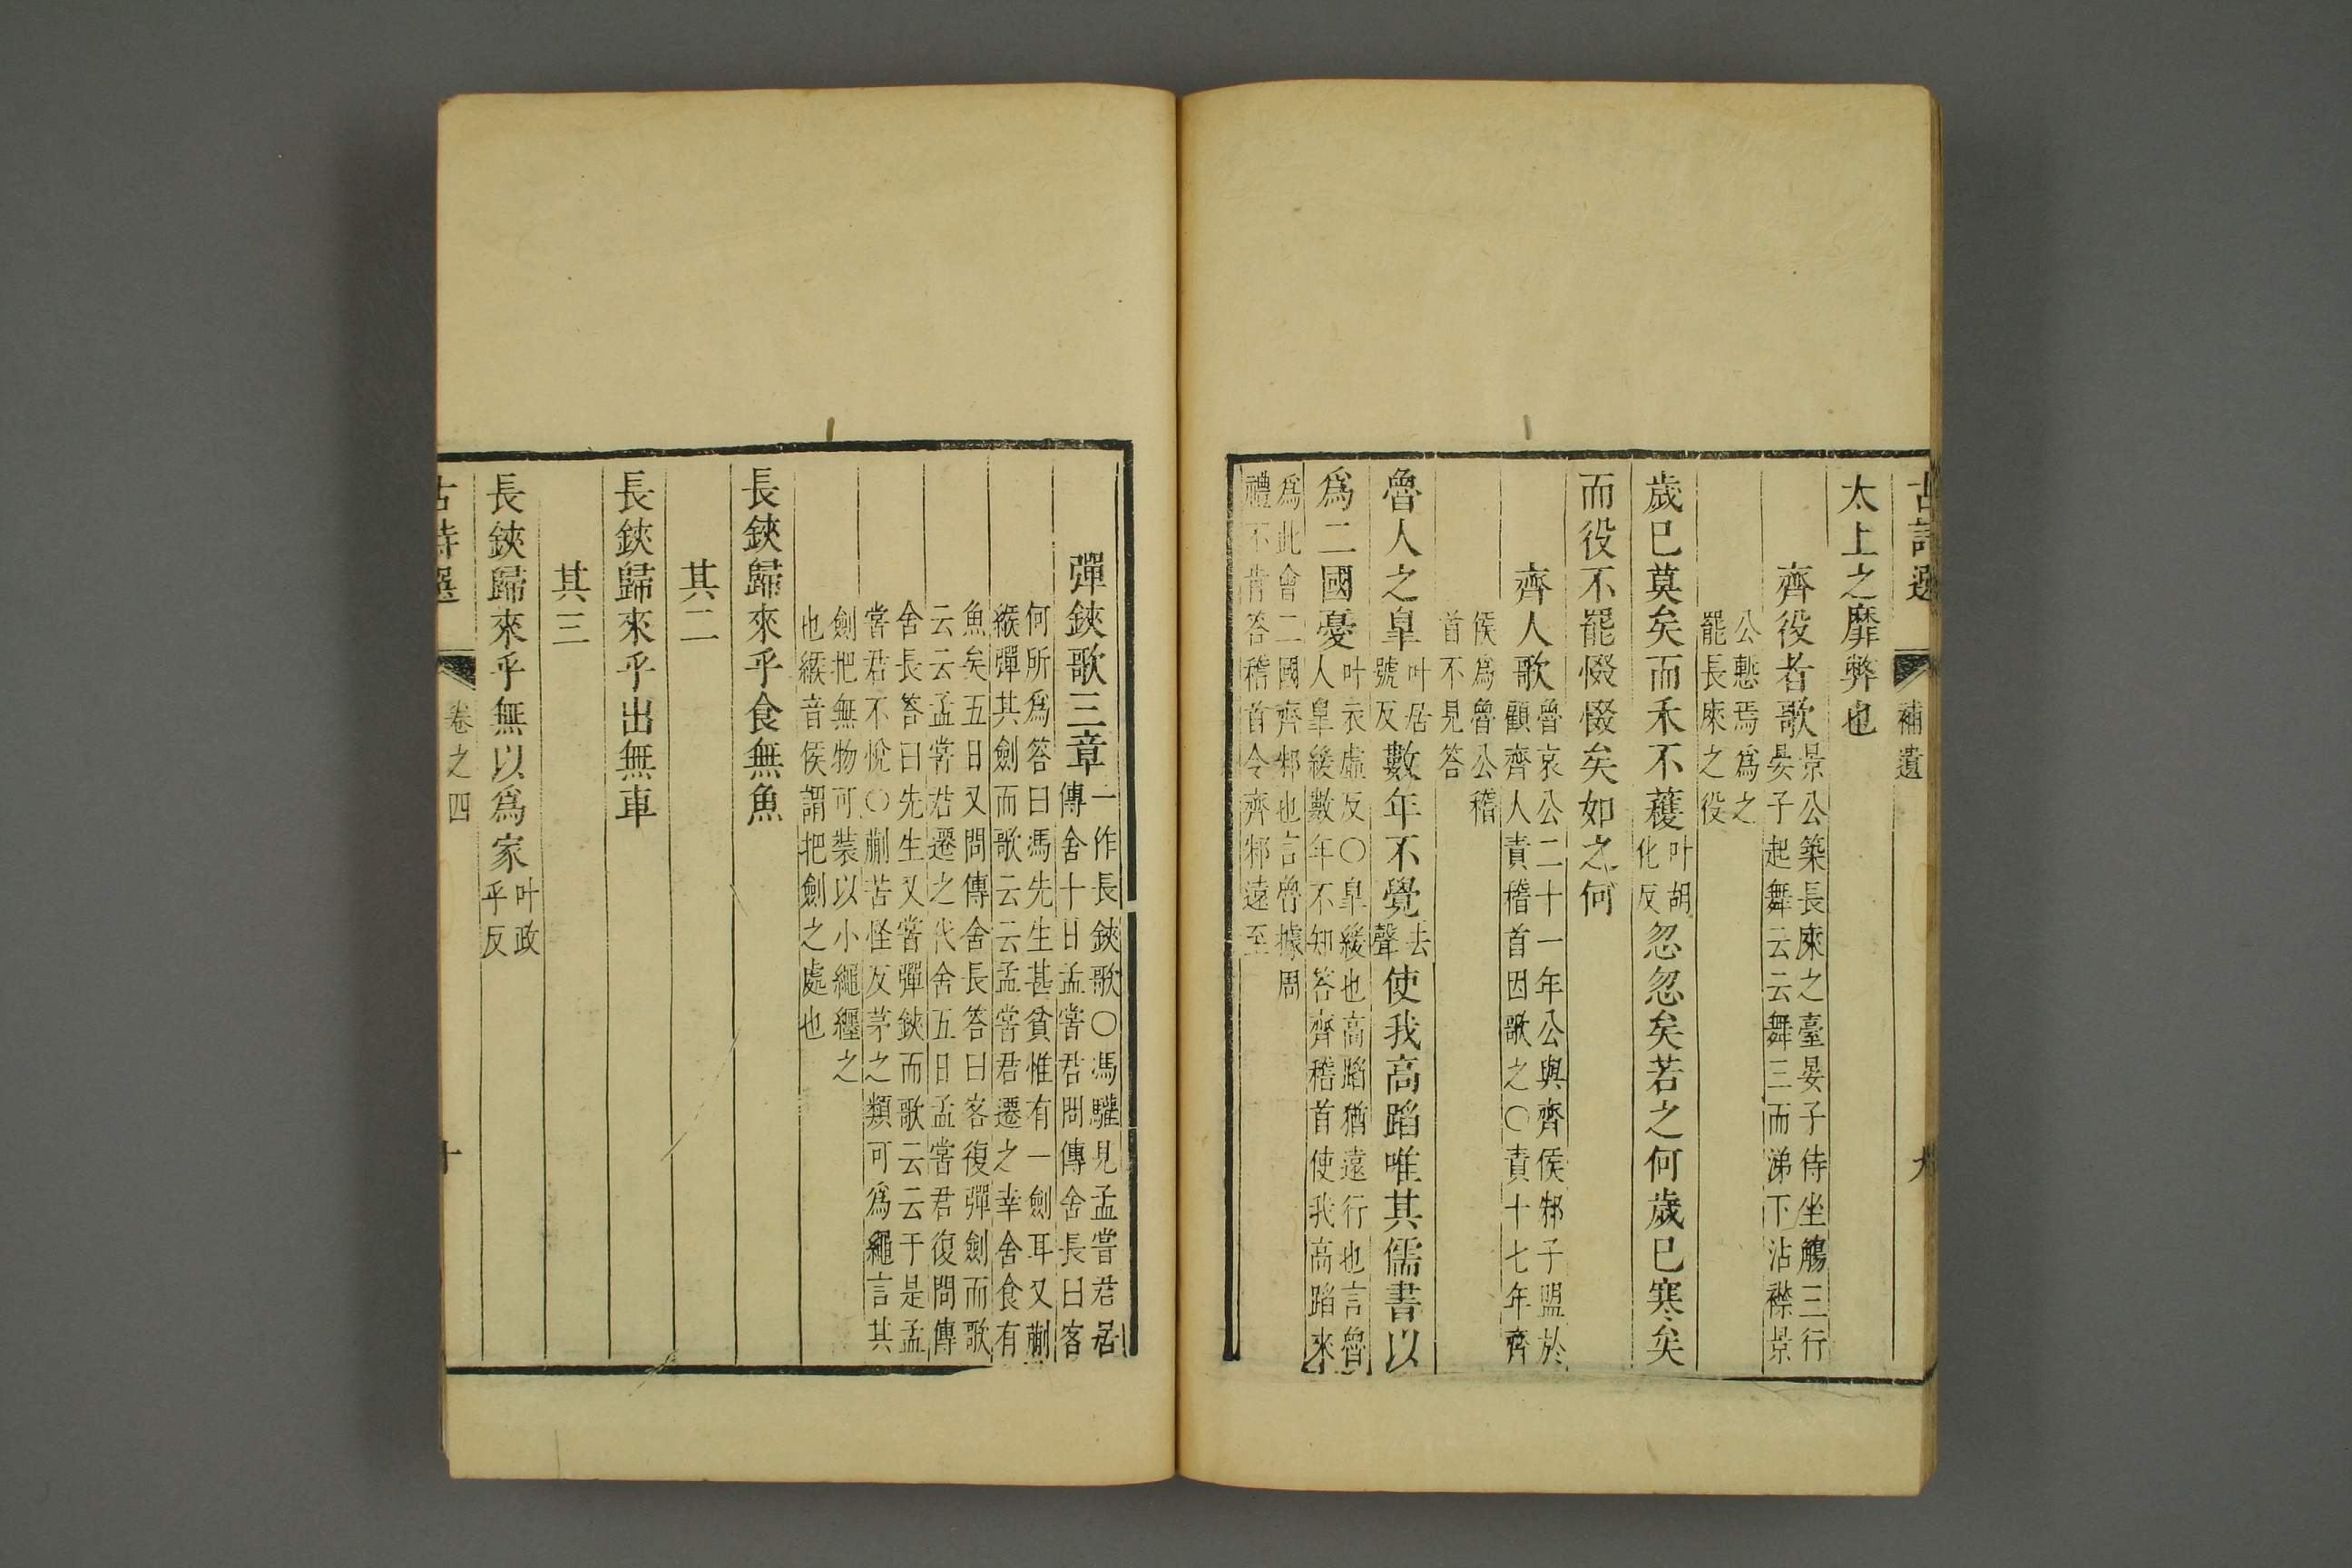 古詩選 補遺 九
太上之靡弊也
齊役者歌 景公築長庲之臺晏子侍坐觴三行
晏子起舞云云舞三而涕下沾襟景
公慙焉爲之
罷長庲之役
歲已莫矣而禾不穫 叶胡化反 忽忽矣若之何歲已寒矣
而役不罷惙惙矣如之何
齊人歌 魯哀公二十一年公與齊侯邾子盟於
顧齊人責稽首因歌之○責十七年齊
侯爲魯公稽
首不見答
魯人之皐 叶居號反 數年不覺 去聲 使我高蹈唯其儒書以
爲二國憂 叶衣虛反○皐緩也高蹈猶遠行也言魯
人皐緩數年不知答齊稽首使我高蹈來
爲此會二國齊邾也言魯據周
禮不肯答稽首令齊邾遠至
彈鋏歌三章 一作長鋏歌○馮驩見孟嘗君君
傳舍十日孟嘗君問傳舍長曰客
何所爲答曰馮先生甚貧惟有一劍耳又蒯
緱彈其劍而歌云云孟嘗君遷之幸舍食有
魚矣五日又問傳舍長答曰客復彈劍而歌
云云孟嘗君遷之代舍五日孟嘗君復問傳
舍長答曰先生又嘗彈鋏而歌云云于是孟
嘗君不悅○蒯苦怪反茅之類可爲繩言其
劍把無物可裝以小繩纏之
也緱音侯謂把劍之處也
長鋏歸來乎食無魚
其二
長鋏歸來乎出無車
其三
長鋏歸來乎無以爲家 叶政乎反
古詩選 卷之四 十